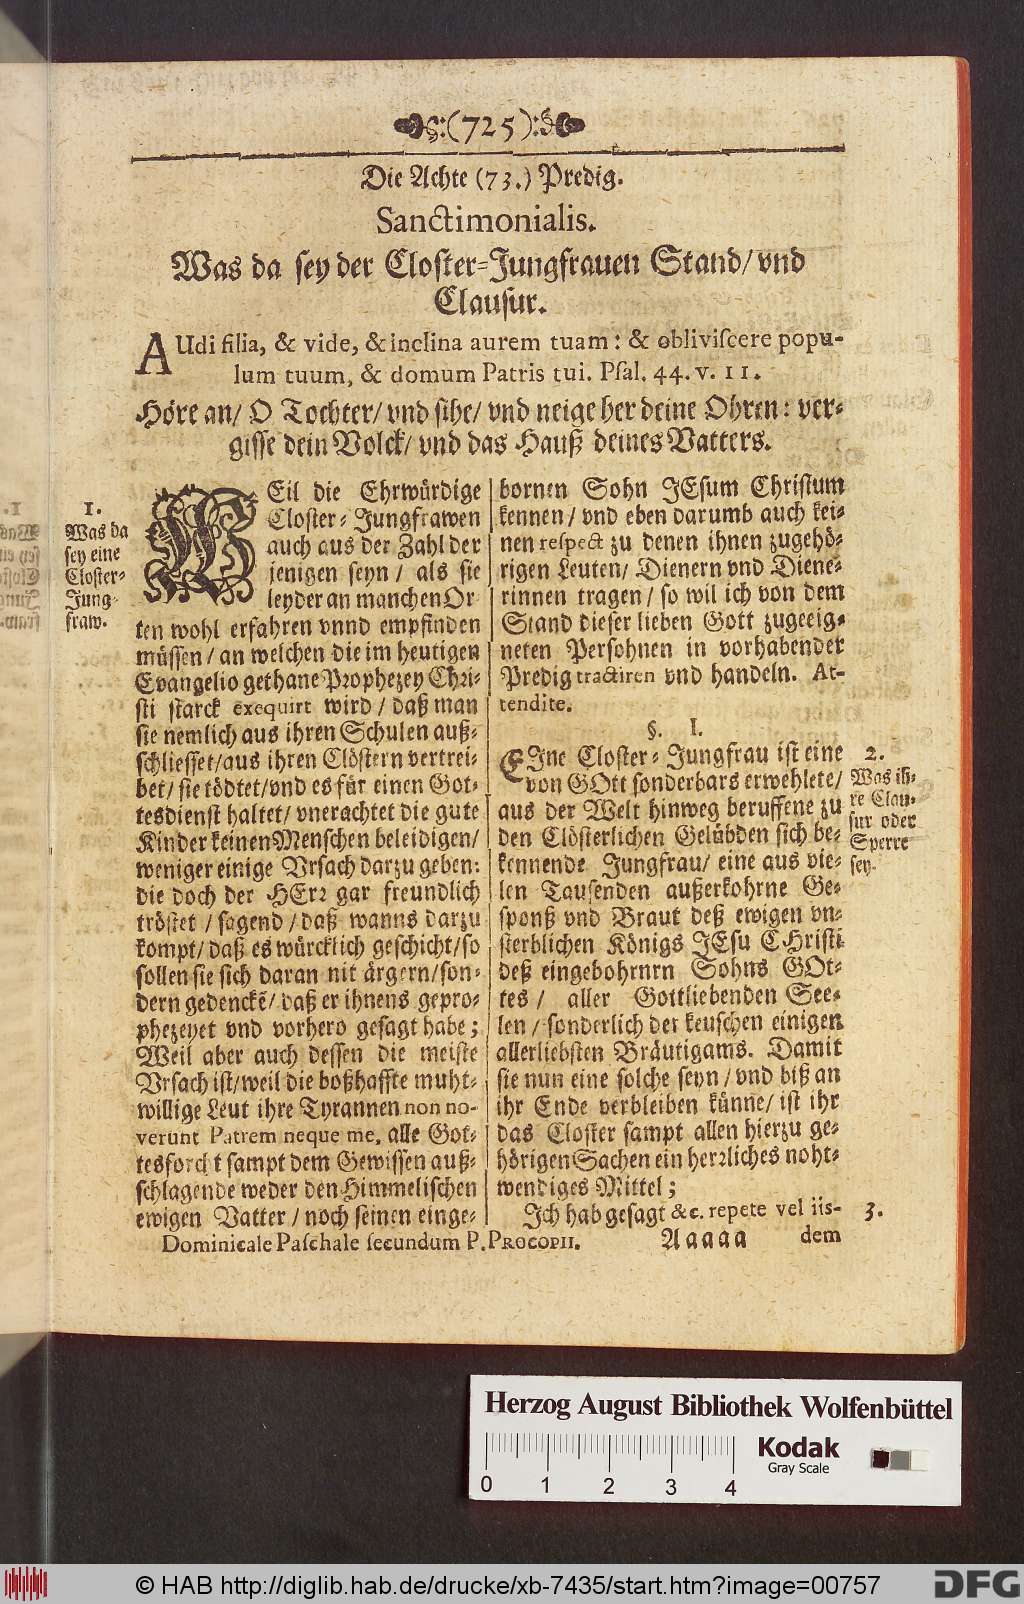 (725)
Die Achte (73.) Predig.
Sanctimonialis.
Was da sey der Closter-Jungfrauen Stand/ vnd
Clausur.
AUdi filia, & vide, & inclina aurem tuam: & obliviscere popu-
lum tuum, & domum Patris tui. Psal. 44. v. 11.
Höre an/ O Tochter/ vnd sihe/ vnd neige her deine Ohren: ver-
gisse dein Volck/ vnd das Hauß deines Vatters.
1.
Was da
sey eine
Closter-
Jung-
fraw.
WEil die Ehrwürdige
Closter-Jungfrawen
auch aus der Zahl der
jenigen seyn/ als sie
leyder an manchen Or
ten wohl erfahren vnnd empfinden
müssen/ an welchen die im heutigen
Evangelio gethane Prophezey Chri-
sti starck exequirt wird/ daß man
sie nemlich aus ihren Schulen auß-
schliesset/ aus ihren Clöstern vertrei-
bet/ sie tödtet/ vnd es für einen Got-
tesdienst haltet/ vnerachtet die gute
Kinder keinen Menschen beleidigen/
weniger einige Vrsach darzu geben:
die doch der HErr gar freundlich
tröstet/ sagend/ daß wanns darzu
kompt/ daß es würcklich geschicht/ so
sollen sie sich daran nit ärgern/ son-
dern gedenckẽ/ daß er ihnens gepro-
phezeyet vnd vorhero gesagt habe;
Weil aber auch dessen die meiste
Vrsach ist/ weil die boßhaffte muht-
willige Leut ihre Tyrannen non no-
verunt Patrem neque me. alle Got-
tesforcht sampt dem Gewissen auß-
schlagende weder den Himmelischen
ewigen Vatter/ noch seinen einge-
bornen Sohn JEsum Christum
kennen/ vnd eben darumb auch kei-
nen respect zu denen ihnen zugehö-
rigen Leuten/ Dienern vnd Diene-
rinnen tragen/ so wil ich von dem
Stand dieser lieben Gott zugeeig-
neten Persohnen in vorhabender
Predig tractiren vnd handeln. At-
tendite.
§. I.
EJne Closter-Jungfrau ist eine
von GOtt sonderbars erwehlete/
aus der Welt hinweg beruffene zu
den Clösterlichen Gelübden sich be-
kennende Jungfrau/ eine aus vie-
len Tausenden außerkohrne Ge-
sponß vnd Braut deß ewigen vn-
sterblichen Königs JEsu CHristi
deß eingebohrnrn Sohns GOt-
tes/ aller Gottliebenden See-
len/ sonderlich der keuschen einigen
allerliebsten Bräutigams. Damit
sie nun eine solche seyn/ vnd biß an
ihr Ende verbleiben künne/ ist ihr
das Closter sampt allen hierzu ge-
hörigen Sachen ein herrliches noht-
wendiges Mittel;
Jch hab gesagt &c. repete vel iis-
2.
Was ih-
re Clau-
sur oder
Sperre
sey.
3.
Dominicale Paschale secundum P. PROCOPII. Aaaaa dem
Herzog August Bibliothek Wolfenbüttel
Kodak
Gray Scale
0 1 2 3 4
© HAB http://diglib.hab.de/drucke/xb-7435/start.htm?image=00757
DFG